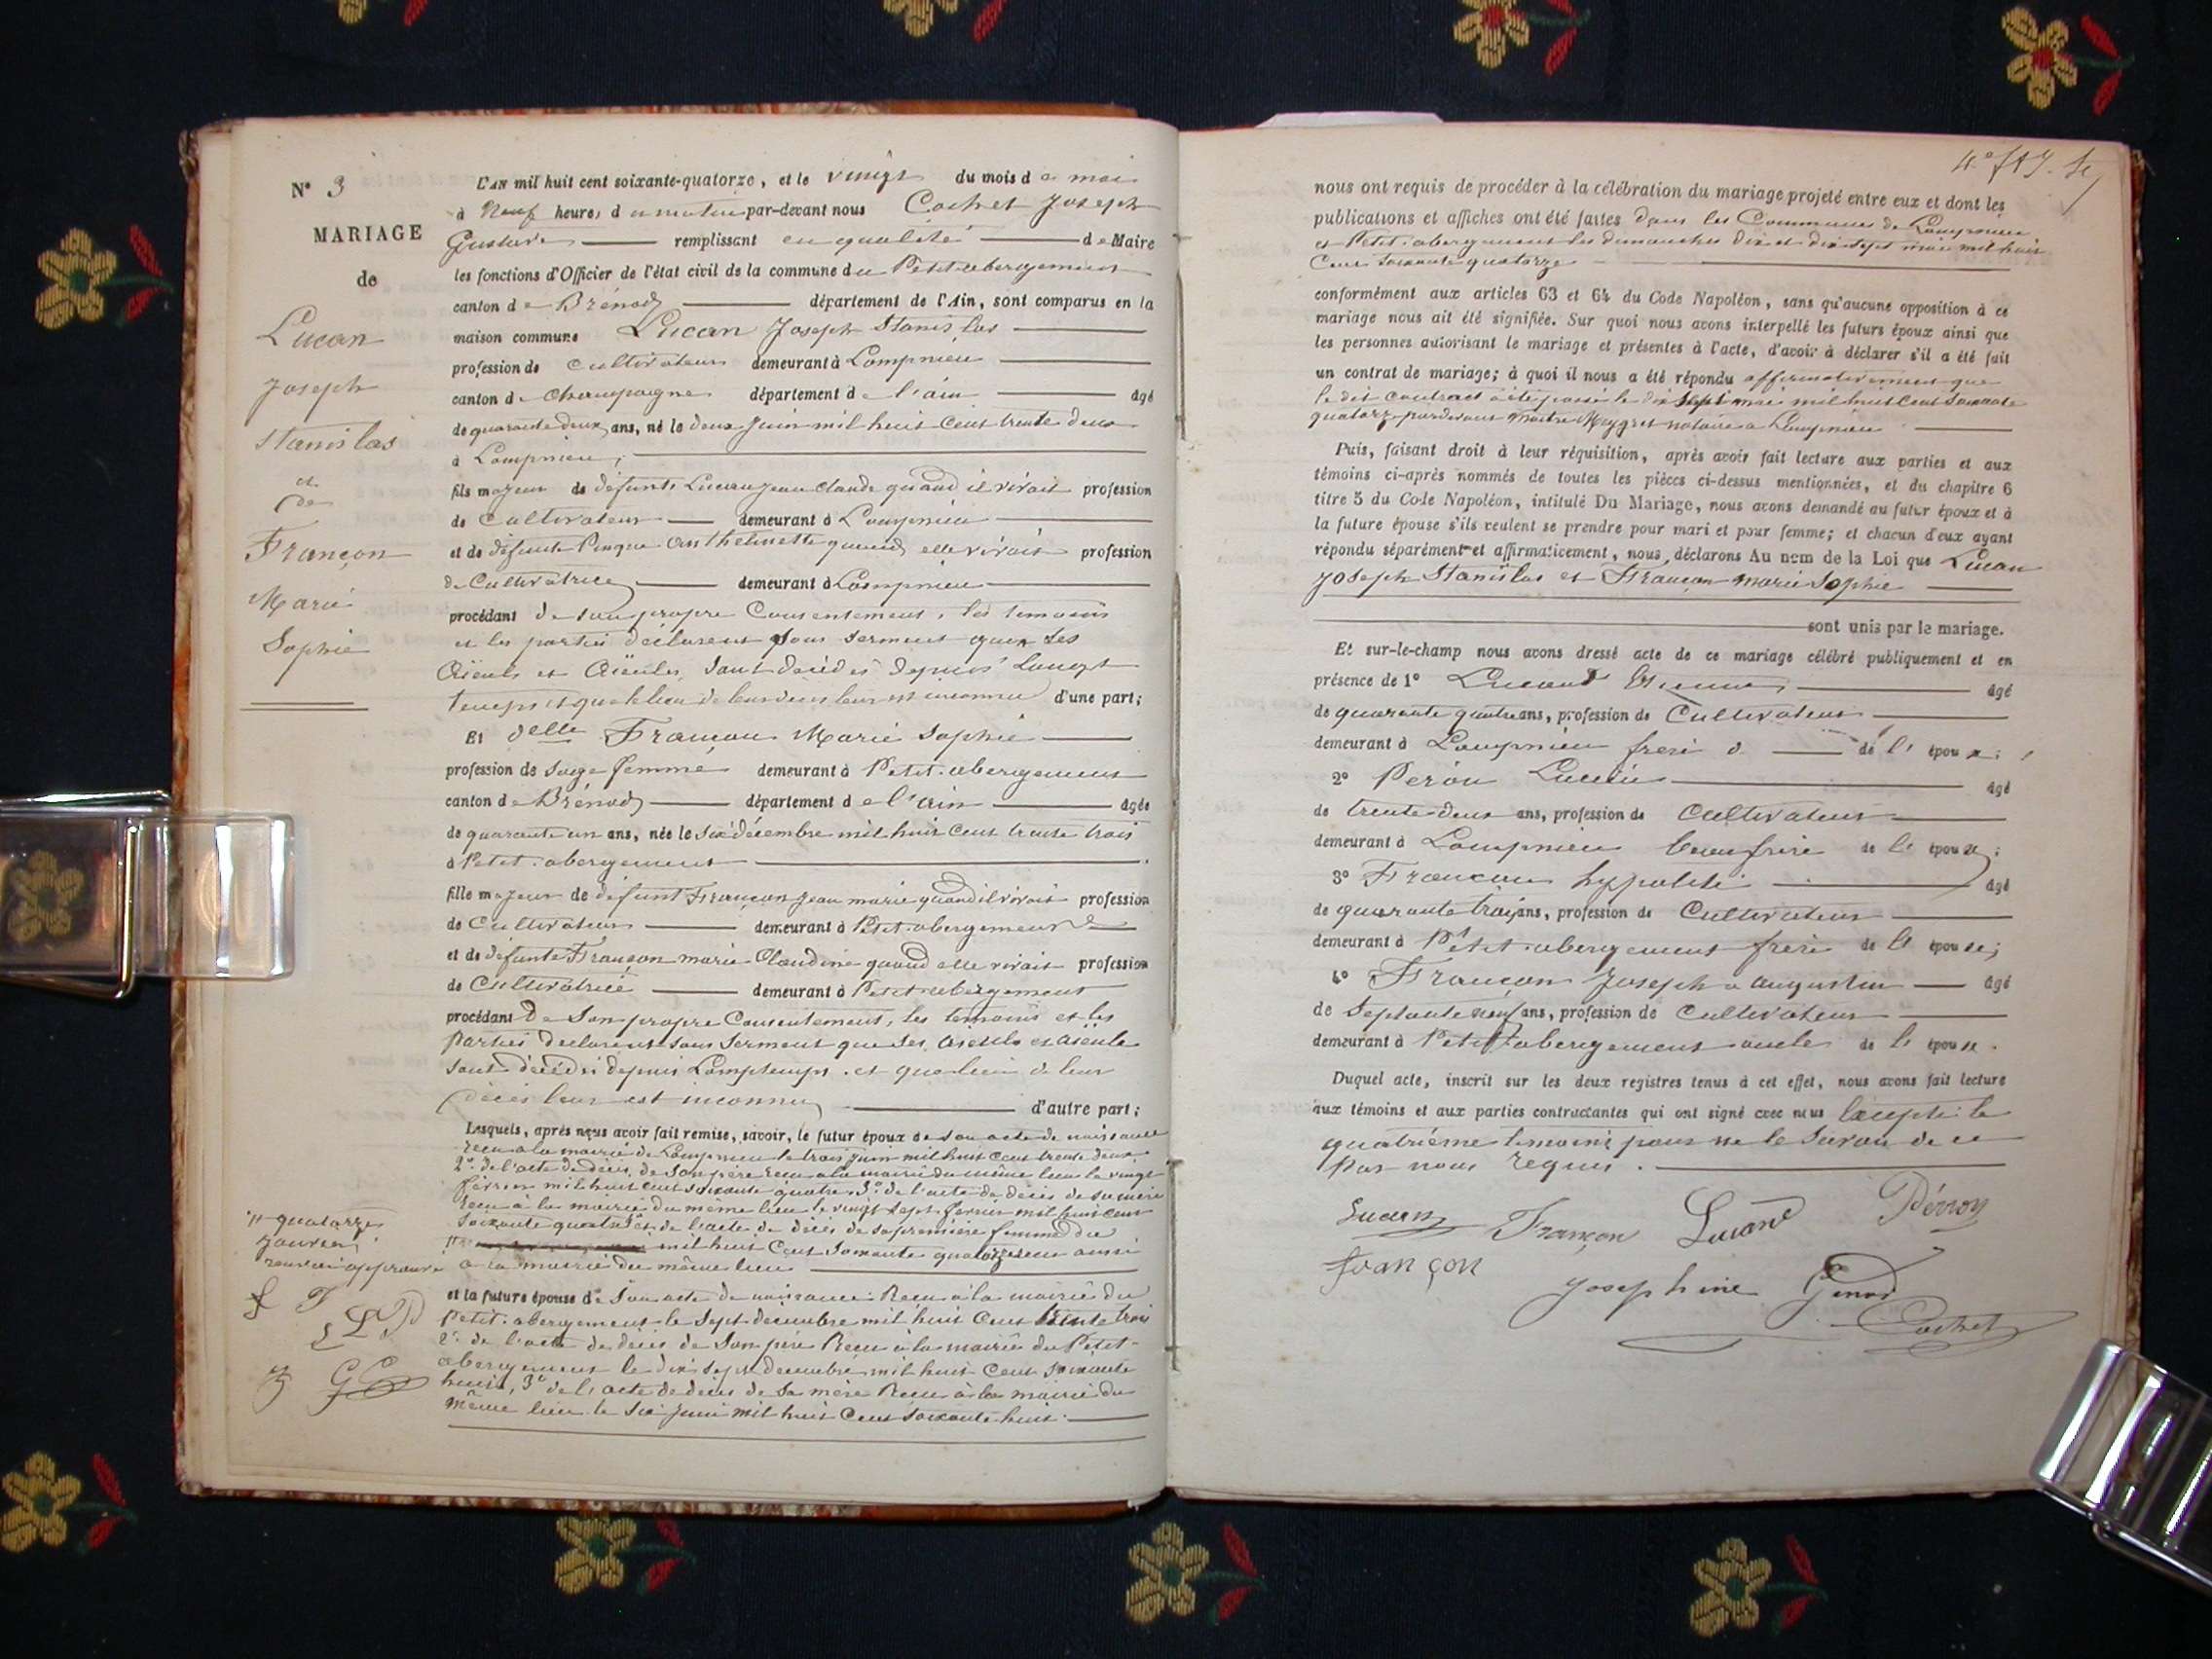 N° 3
MARIAGE
de
Lucan
Joseph
Stanislas
et
de
Françon
Marie
Sophie
L'AN mil huit cent soixante-quatorze, et le vingt du mois de mai
à Neuf heures du matin par-devant nous Cochet Joseph
Gustave remplissant en qualité de Maire
les fonctions d'Officier de l'état civil de la commune du Petit abergement
canton de Brénod département de l'Ain, sont comparus en la
maison commune Lucan Joseph Stanislas
profession de cultivateur demeurant à Lompnieu
canton de Champagne département de l'ain agé
de quarante deux ans, né le deux Juin mil huit cent trente deux
à Lompnieu,
fils majeur de défunt Lucan Jean Claude quand il vivait profession
de Cultivateur demeurant à Lompnieu
et de défunte Anthelmette quand elle vivait profession
de Cultivatrice demeurant à Lompnieu
procédant de son propre Consentement, les temoins
et les partie déclarent sous serment que les
Aïeuls et Aïeules sont décédés depuis Longt
temps et que le lieu de leur deces leur est inconnu d'une part;
Et delle Françon Marie Sophie
profession de sage femme demeurant à Petit abergement
canton de Brénod département de l'ain agée
de quarante un ans, née le six décembre mil huit cent trente trois
à Petit abergement
fille majeur de défunt Françon Jean marie quand il vivait profession
de Cultivateur demeurant à Petit abergement
et de défunte Françon marie Claudine quand elle vivait profession
de Cultivatrice demeurant à Petit abergement
procédant De Son propre Consentement, les temoins et les
parties declarent sous Serment que ses aieuls et aieule
sont décédés depuis Lomptemps et que lieu de leur
décès leur est inconnu d'autre part;
Lesquels, après nous avoir fait remise, savoir, le futur époux de son acte de naissance
recu a la mairie de Lompnieu le trois juin mil huit cent trente deux
2° de l'acte de décès de son père recu a la mairie du même lieu le vingt
février mil huit cent soixante quatre 3° de l'acte de décès de sa mère
recu à la mairie du même lieu le vingt sept fevrier mil huit cent
soixante quatre et de l'acte de décès de sa première femme du
mil huit Cent Soixante quatorze recu aussi
a la mairie du même lieu
" quatorze
janvier
renvoi approuvé
et la future épouse de Son acte de naissance Recu à la mairie du
Petit abergement le Sept décembre mil huit Cent trente trois
2° de l'acte de décès de Son père Recu à la mairie du Petit-
abergement le dix sept decembre mil huit Cent soixante
huit, 3° de l'acte de deces de Sa mère Recu à la mairie du
même lieu le Six Juin mil huit Cent soixante huit
nous ont requis de procéder à la célébration du mariage projeté entre eux et dont les
publications et affiches ont été faites dans les Communes de Lompnieu
et Petit abergement les dimanches dix et dix sept mai mil huit
Cent soixante quatorze
conformément aux articles 63 et 64 du Code Napoléon, sans qu'aucune opposition à ce
mariage nous ait été signifiée. Sur quoi nous avons interpellé les futurs époux ainsi que
les personnes autorisant le mariage et présentes à l'acte, d'avoir à déclarer s'il a été fait
un contrat de mariage; à quoi il nous a été répondu affirmativement que
le dit contract a été passé le dix sept mai mil huit cent soixante
quatorze pardevant maître notaire a Lompnieu
Puis, faisant droit à leur réquisition, après avoir fait lecture aux parties et aux
témoins ci-après nommés de toutes les pièces ci-dessus mentionnées, et du chapitre 6
titre 5 du Code Napoléon, intitulé Du Mariage, nous avons demandé au futur époux et à
la future épouse s'ils veulent se prendre pour mari et pour femme; et chacun d'eux ayant
répondu séparément et affirmativement, nous déclarons Au nom de la Loi que Lucan
Joseph Stanislas et Françon marie Sophie
sont unis par le mariage.
Et sur-le-champ nous avons dressé acte de ce mariage célébré publiquement et en
présence de 1° Lucand Etienne agé
de quarante quatre ans, profession de Cultivateur
demeurant à Lompnieu frere de l' époux;
2° Peron Lucien agé
de trente deux ans, profession de Cultivateur
demeurant à Lompnieu beau frère de l' épouse;
3° Françon hyppolite agé
de quarante trois ans, profession de Cultivateur
demeurant à Petit abergement frère de l' épouse;
4° Françon Joseph augustin agé
de Septante neuf ans, profession de Cultivateur
demeurant à Petit abergement oncle de l' épouse.
Duquel acte, inscrit sur les deux registres tenus à cet effet, nous avons fait lecture
aux témoins et aux parties contractantes qui ont signé avec nous Excepté le
quatrième temoins pour ne le Savoir de ce
par nous requis.
Lucan Françon Lucand Pérron
françon Josephine Genod
Cochet